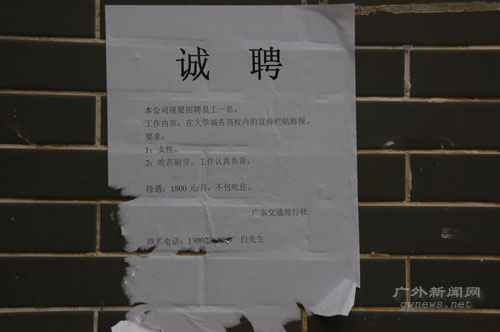 诚 聘
本公司现要招聘员工一名。
工作内容:在大学城各高校内的宣传栏贴海报。
要求:
1:女性。
2:吃苦耐劳,工作认真负责。
待遇:1800元/月,不包吃住。
广东交通旅行社
电话:13002 白先生
广外新闻网
gwnews.net